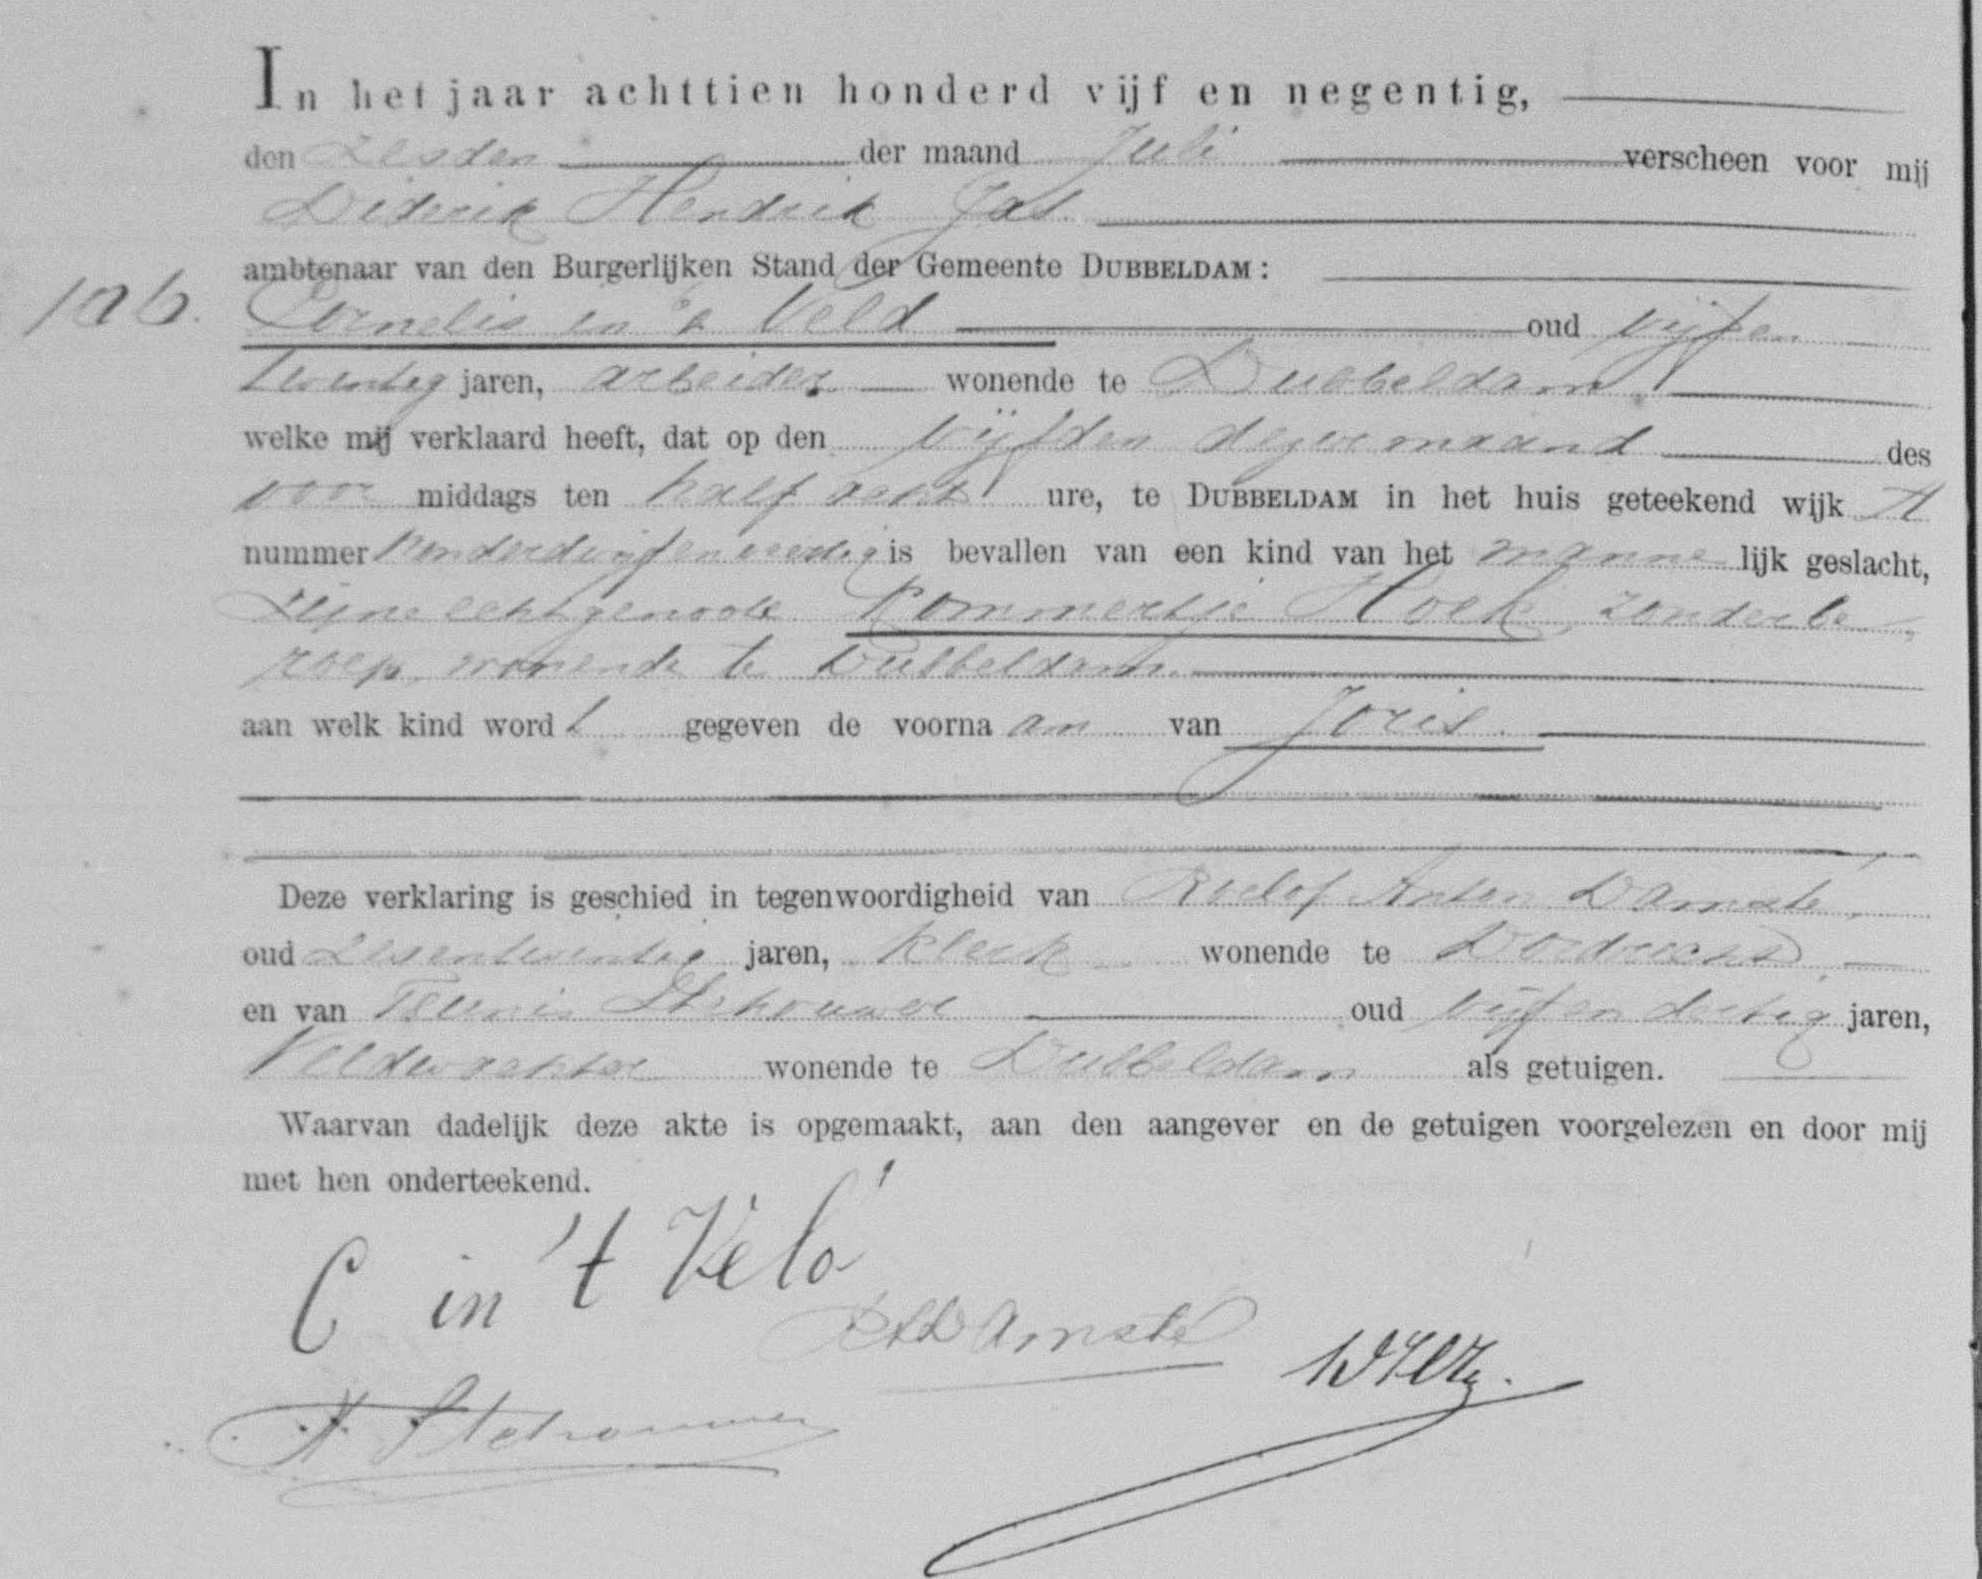 In het jaar achttien honderd vijf en negentig,
den Zesden der maand Juli verscheen voor mij
Diderik Hendrik Jas.
ambtenaar van den Burgerlijken Stand der Gemeente DUBBELDAM:
106. Cornelis in 't Veld oud vijf en
twintig jaren, arbeider wonende te Dubbeldam,
welke mij verklaard heeft, dat op den vijfden dezer maand des
voor middags ten half acht ure, te DUBBELDAM in het huis geteekend wijk A
nummer honderdvijfenveertig is bevallen van een kind van het manne lijk geslacht,
zijne echtgenoote Kommertje Hoek, zonder be-
roep, wonende te Dubbeldam.
aan welk kind word t gegeven de voorna am van Joris.
Deze verklaring is geschied in tegenwoordigheid van Roelof Anton Damsté,
oud zesentwintig jaren, klerk wonende te Dordrecht,
en van Teunis Stehouwer oud vijf en dertig jaren,
Veldwachter wonende te Dubbeldam als getuigen.
Waarvan dadelijk deze akte is opgemaakt, aan den aangever en de getuigen voorgelezen en door mij
met hen onderteekend.
C in 't Veld
RADamsté
Stehouwer